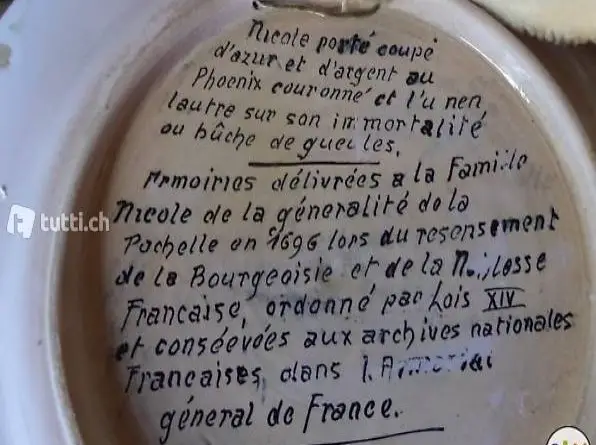 Nicole porté coupé
d'azur et d'argent au
Phoenix couronné et l'u nen
lautre sur son immortalité
ou bûche de gueules.
Armoiries délivrées a la Famille
Nicole de la géneralité de la
Rochelle en 1696 lors du resensement
de la Bourgeoisie et de la Noblesse
Francaise, ordonné par Lois XIV
et conséevées aux archives nationales
Francaises, dans l'Armorial
géneral de France.
tutti.ch